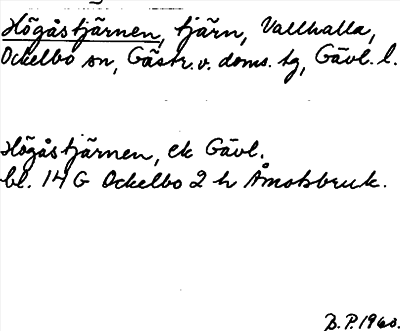 Högåstjärnen, tjärn, Vallhalla,
Ockelbo sn, Gästr. v. doms. tg, Gävl. l.
Högåstjärnen, ek Gävl.
bl. 14 G Ockelbo 2 h Åmotsbruk.
B. P. 1960.